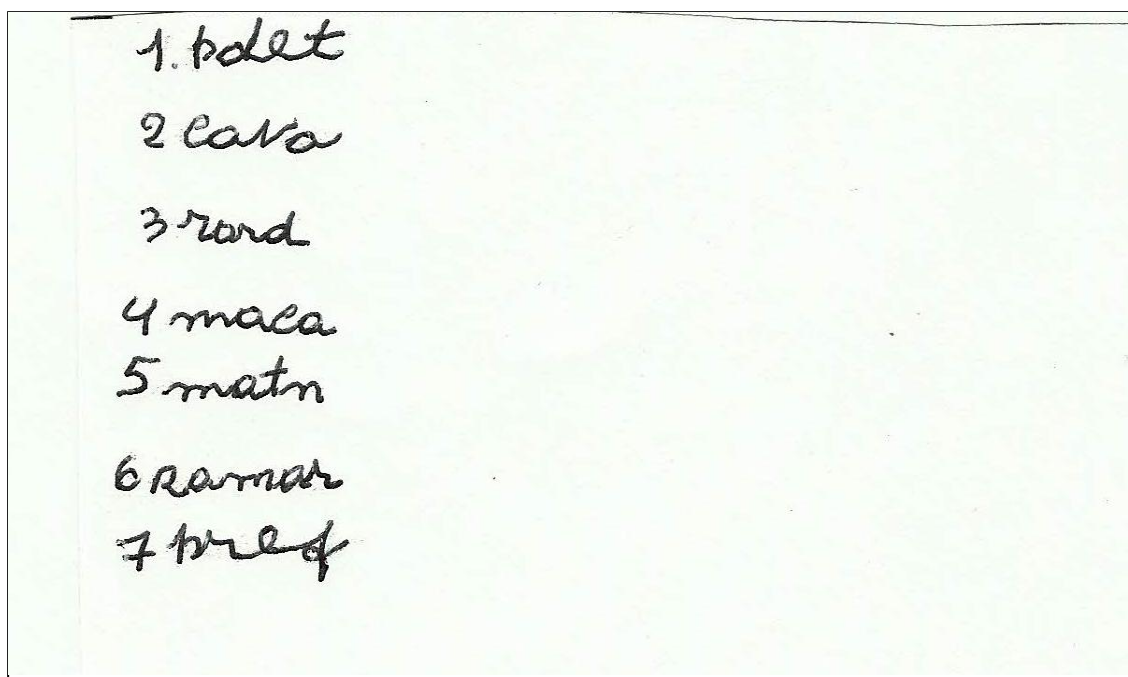 1. polet
2 cava
3 rard
4 maca
5 matn
6 ramar
7 pref